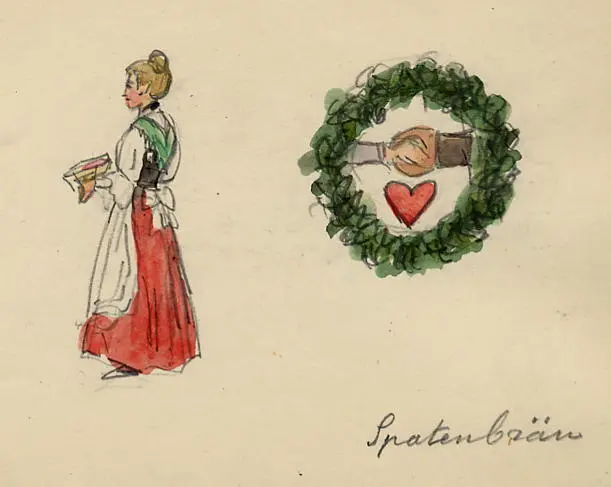 Spatenbräu